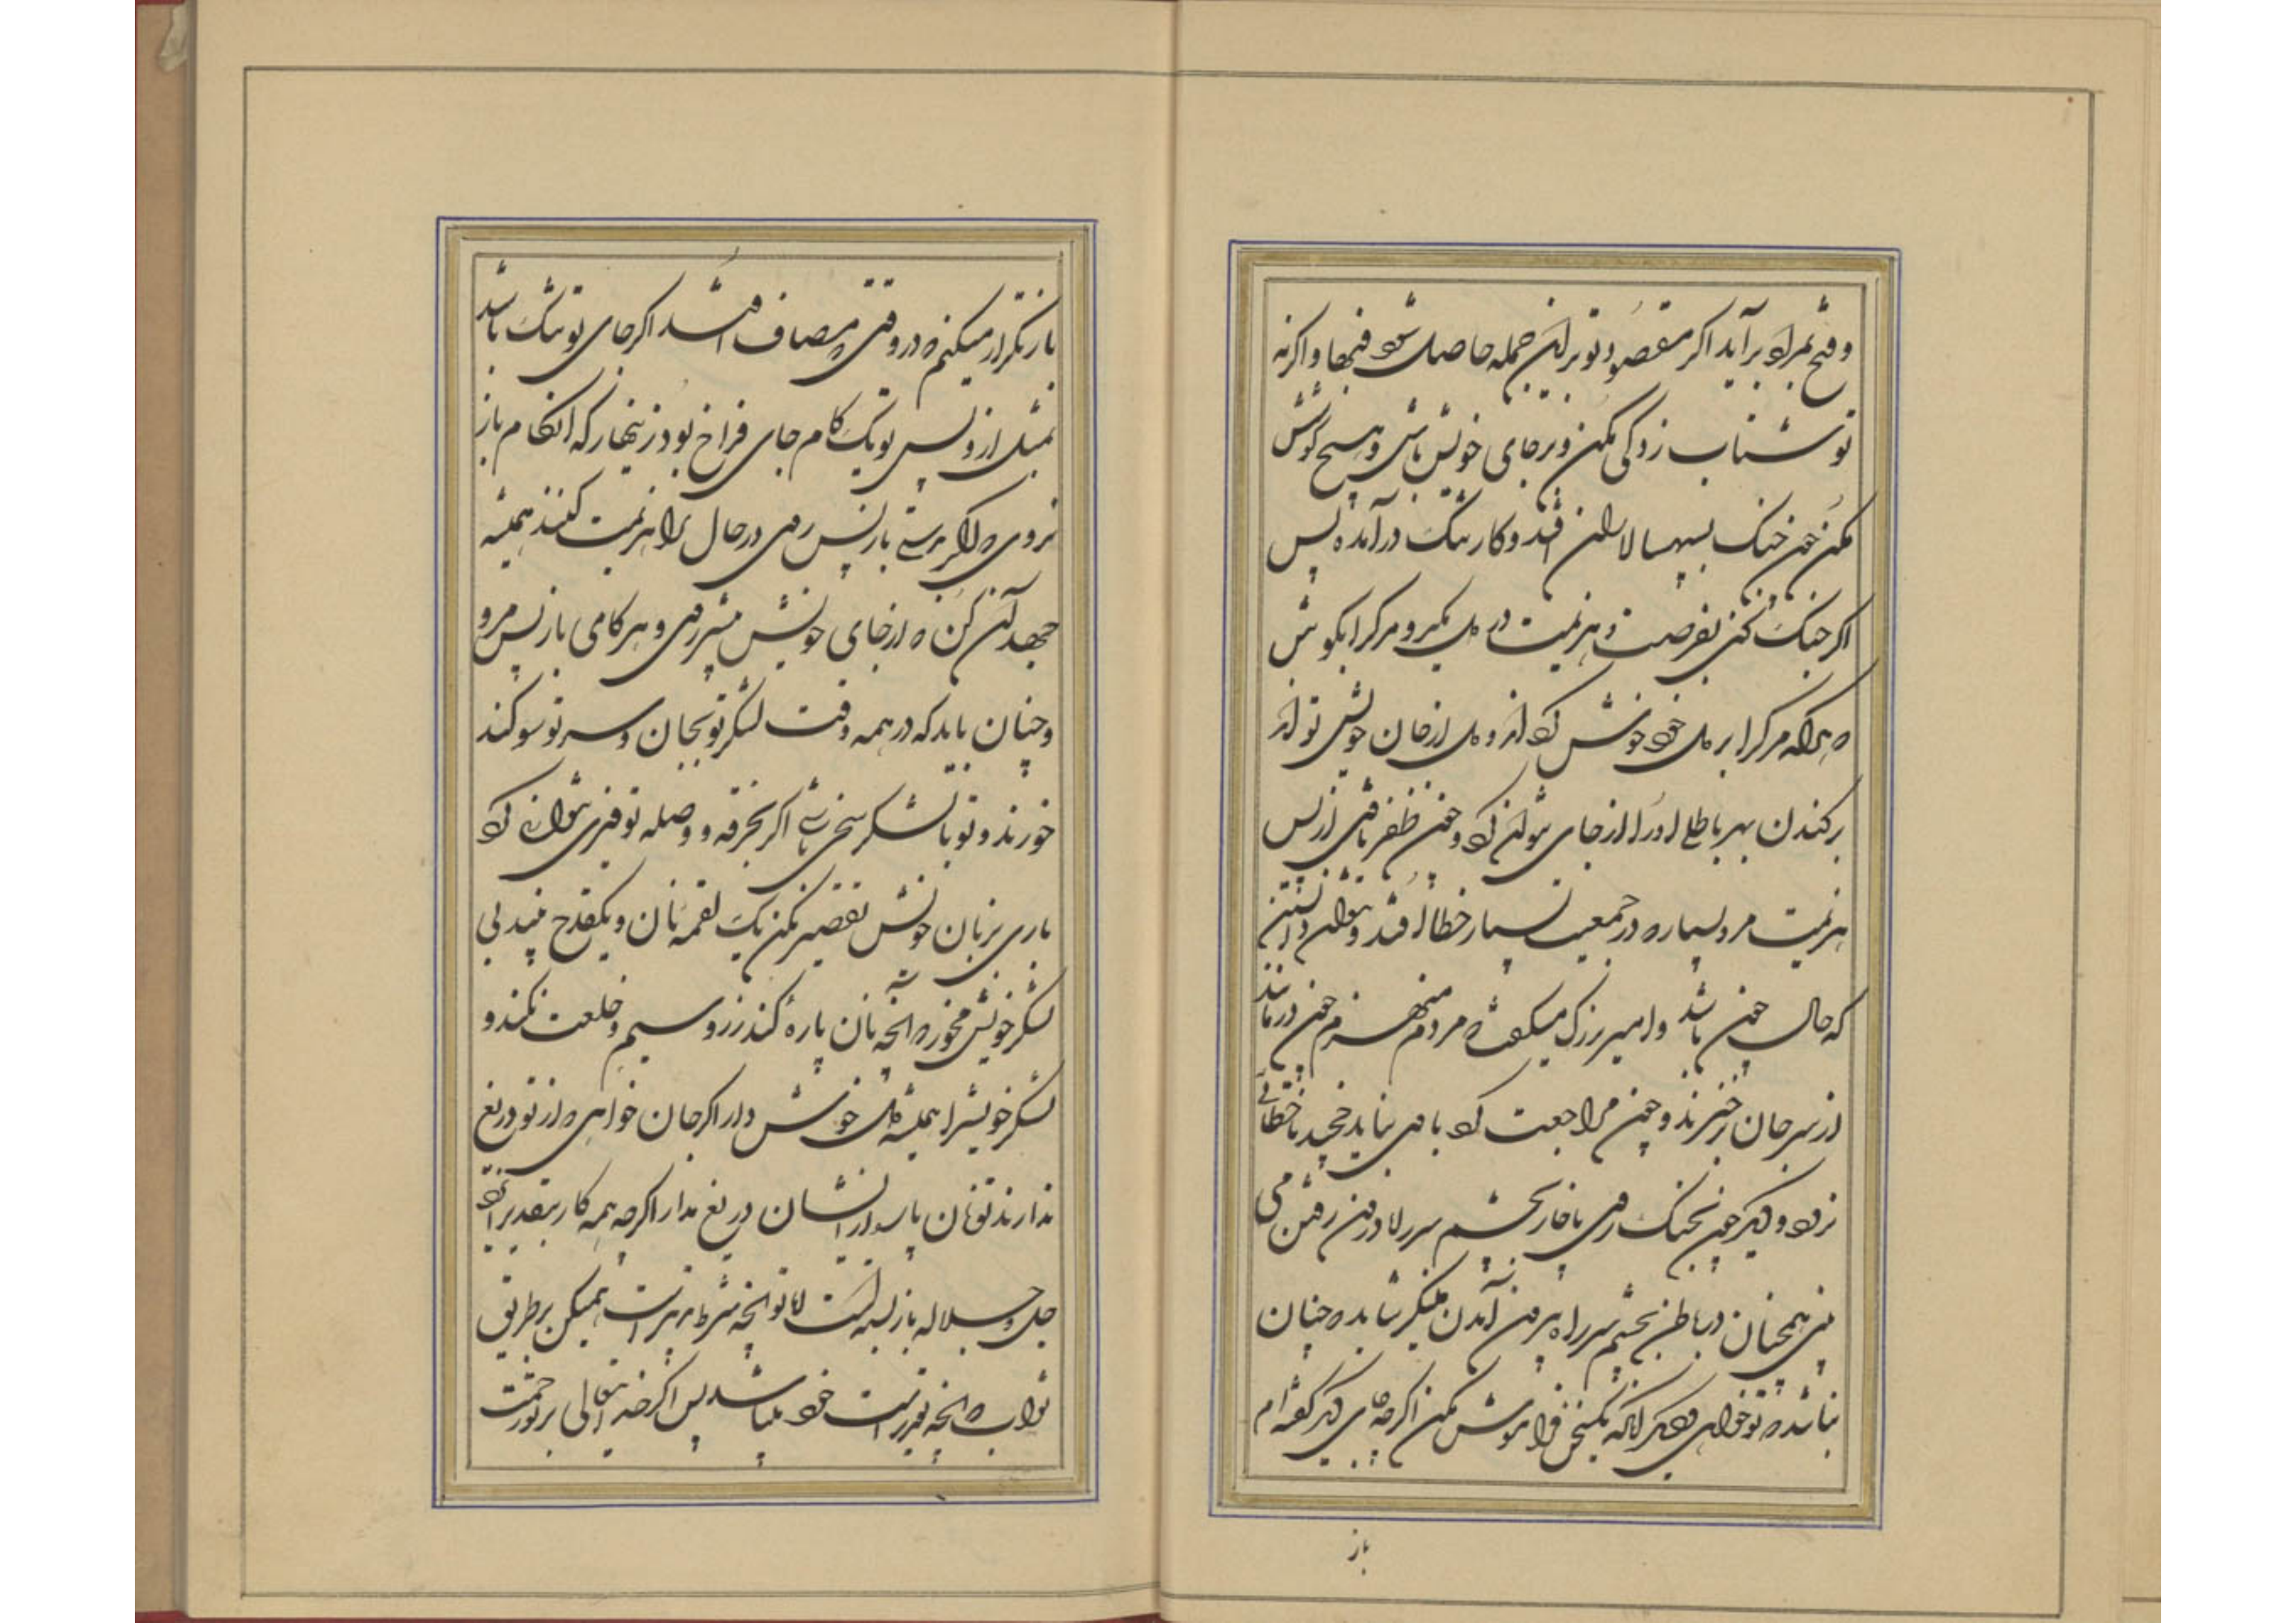 و فتح تمرا برآید اگر مقصود تو بر این جمله حاصل شود فبها و اگرنه
تو شتاب زدگی مکن و بر جای خویش باش و هیچ کوشش
مکن چون جنک بسپهسالاران افتد و کار تنک درآمده پس
اگر جنک کنی بفرصت و هزیمت در دل مکیر و مرک را بکوش
که هرآنکه مرک را بر دل خود خوش کرد او و دل از جان خویش تواند
برکندن بهر باطل او را از جای نتوان کرد و چون ظفر یافتی از پس
هزیمت مرو بسیار که در جمعیت بسیار خطا افتد و نتوان دانستن
که حال چون باشد و امیر بزرک میکفت که مردم منهزم چون درمانند
از سر جان خیزند و چون مراجعت کرد با وی نباید چخید تا خطائی
نرود و دیگر چون بجنک روی باید بچشم سر راه درون رفتن می
بینی همچنان در باطن بچشم سر راه بیرون آمدن میگر شاید که چنان
نباشد که تو خواهی دیگر آنکه یکسخن فراموش مکن اگرچه جای دیگر گفته‌ام
باز
باز تکرار میکنم که در وقتی مصاف افتد اگر جای تو تنک باشد
بمثل از پس تو یک کام جای فراخ بود زینهار که آنکام باز
نروی که اگر بدستی باز پس روی در حال ترا هزیمت کنند همیشه
جهد آن کن که از جای خویش پیشتر روی و هرکامی باز پس مرو
و چنان باید که در همه وقت لشکر تو بجان و سر تو سوکند
خورند و تو با لشکر سخی باشی اگر بخرقه و وصله توفیری نتوانی کرد
باری بزبان خوش تقصیر مکن یک لقمه نان و یکقدح نبیذ بی
لشکر خویش مخور که آنچه نان پاره کند زر و سیم و خلعت نکند و
لشکر خویش را همیشه دل خوش دار اگر جان خواهی که از تو دریغ
ندارند تو نان پاره از ایشان دریغ مدار اگرچه همه کار بتقدیر ایزد
جل و جلاله باز بسته است اما تو آنچه شرط تدبیر است همیکن بر طریق
ثواب که آنچه تقدیر است خود میباشد پس اگر خدایتعالی بر تو رحمت